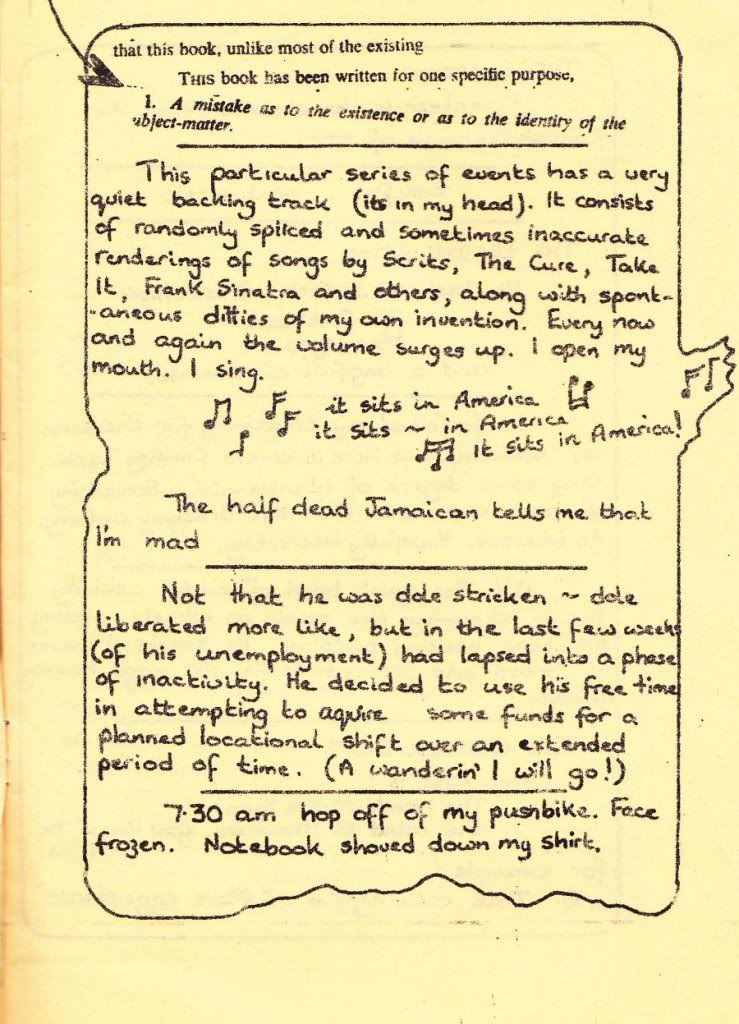 that this book, unlike most of the existing
THIS book has been written for one specific purpose,
1. A mistake as to the existence or as to the identity of the
subject-matter.
This particular series of events has a very
quiet backing track (its in my head). It consists
of randomly spliced and sometimes inaccurate
renderings of songs by Scrits, The Cure, Take
It, Frank Sinatra and others, along with spont-
-aneous ditties of my own invention. Every now
and again the volume surges up. I open my
mouth. I sing.
it sits in America
it sits ~ in America
It sits in America!
The half dead Jamaican tells me that
I'm mad
Not that he was dole stricken ~ dole
liberated more like, but in the last few weeks
(of his unemployment) had lapsed into a phase
of inactivity. He decided to use his free time
in attempting to aquire some funds for a
planned locational shift over an extended
period of time. (A wanderin' I will go!)
7.30 am hop off of my pushbike. Face
frozen. Notebook shoved down my shirt.